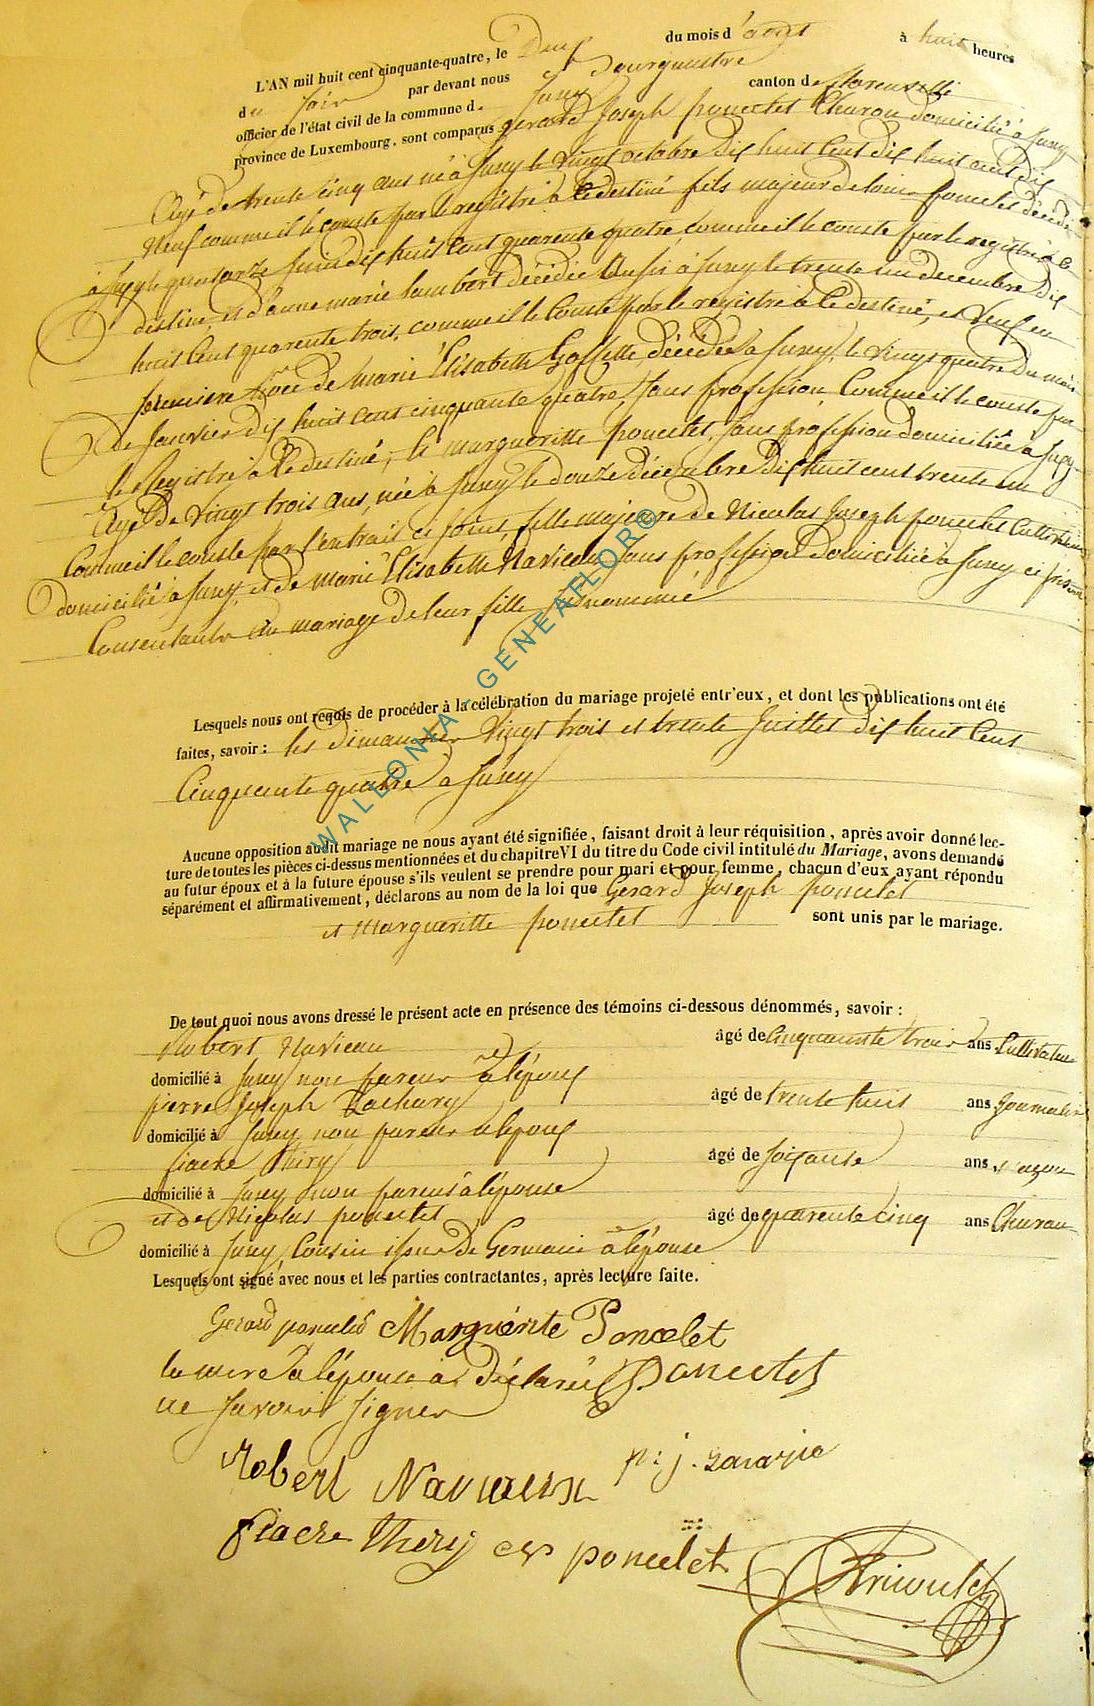 L'AN mil huit cent cinquante-quatre, le Deux du mois d'août à huit heures
du Soir par devant nous Bourguestre
officier de l'état civil de la commune d. Jusey canton de florenville
province de Luxembourg, sont comparus gerard Joseph poncelet Charon domicilié à Jusey
Agé de trente cinq ans né à Jusey le vingt octobre dix huit cent dix huit cent dix
Neuf comme il le conste par le registre à ce destiné fils majeur de poncelet décédé
à Jusey le quatorze juin dix huit cent quarente quatre, comme il le conste par le registre à ce
destiné, et d'anne marie lambert décédée Aussi à Jusey le trente un decembre dix
huit Cent quarente trois, comme il le conste par le registre à ce destiné, et veuf en
premiere noce de Marie Elisabette Goffette, décédée à Jusey, le vingt quatre du mois
de Janvier dix huit cent cinquante quatre, Sans profession, Comme il le conste par
le Registre à ce destiné, et margueritte poncelet, Sans profession domiciliée à Jusey
Agé de vingt trois ans, née à Jusey le douze décembre dix huit cent trente un
Comme il le conste par l'extrait ci joint, fille majeure de Nicolas Joseph poncelet Cultivateur
domicilié à Jusey, et de Marie Elisabette Navieau, Sans profession Domiciliée à Jusey ci présent
Consentants au mariage de leur fille
Lesquels nous ont requis de procéder à la célébration du mariage projeté entr'eux, et dont les publications ont été
faites, savoir : les dimanches vingt trois et trente Juillet dix huit Cent
Cinquante quatre à Jusey
Aucune opposition audit mariage ne nous ayant été signifiée, faisant droit à leur réquisition, après avoir donné lec-
ture de toutes les pièces ci-dessus mentionnées et du chapitre VI du titre du Code civil intitulé du Mariage, avons demandé
au futur époux et à la future épouse s'ils veulent se prendre pour mari et pour femme, chacun d'eux ayant répondu
séparément et affirmativement, déclarons au nom de la loi que Gérard Joseph poncelet
et Margueritte poncelet sont unis par le mariage.
De tout quoi nous avons dressé le présent acte en présence des témoins ci-dessous dénommés, savoir :
Robert Navieau âgé de Cinquante trois ans Cultivateur
domicilié à Jusey non pareur à l'époux
pierre Joseph Zachary âgé de trente huit ans Journalier
domicilié à Jusey non pareur à l'époux
fiacre Thiry âgé de soixante ans, maçon
domicilié à Jusey non pareus à l'épouse
et de Nicolas poncelet âgé de quarente cinq ans Charon
domicilié à Jusey Cousin issu de Germain à l'épouse
Lesquels ont signé avec nous et les parties contractantes, après lecture faite.
Gerard poncelet Marguérite Poncelet
la mere de l'épouse a déclaré Poncelet
ne savoir signer
Robert Navieaux p: j. zacarie
fiacre Thiry poncelet
WALLONIA - GENEAFLOR©